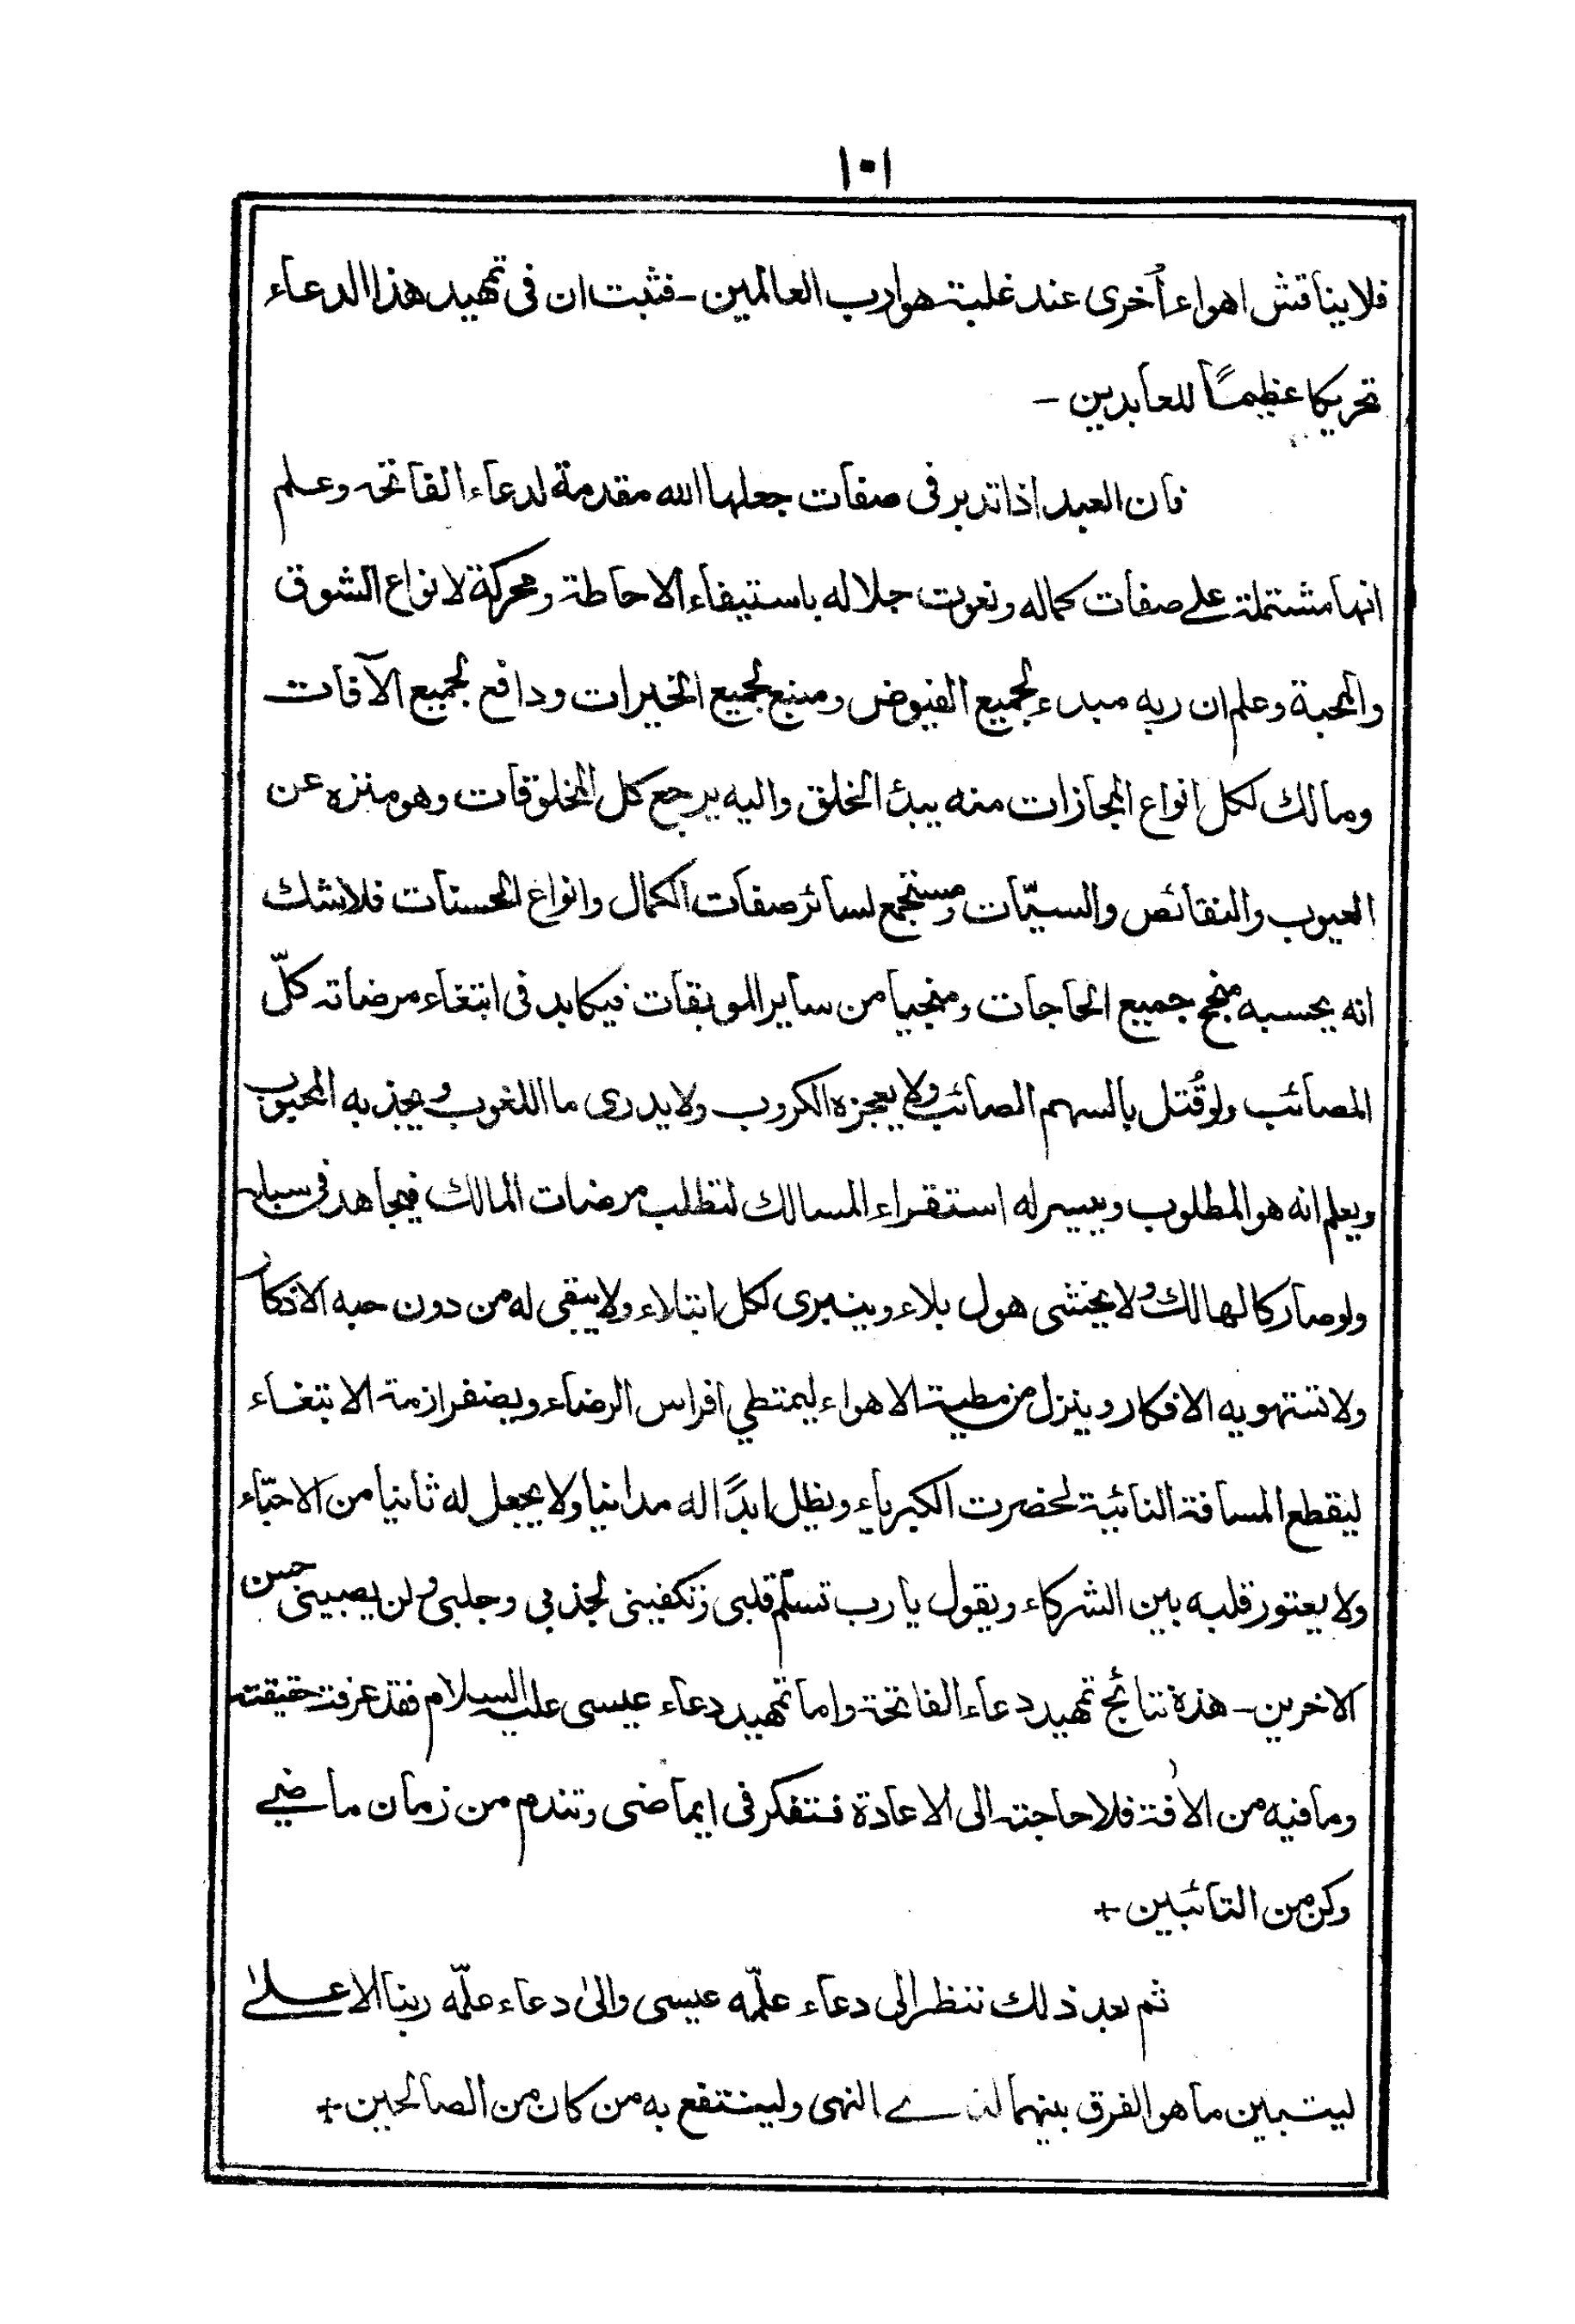 ١٠١
فلا يناقش اهواء أُخرى عند غلبة هوا رب العالمين - فثبت ان فى تمهيد هذا الدعاء
تحريكا عظيمًا للعابدين -
فان العبد اذا تدبر فى صفات جعلها الله مقدمة لدعاء الفاتحه وعلم
انها مشتملة على صفات كماله ونعوت جلاله باستيفاء الاحاطة ومحركة لانواع الشوق
والمحبة وعلم ان ربه مبدء لجميع الفيوض ومنبع لجميع الخيرات ودافع لجميع الآفات
ومالك لكل انواع المجازات منه يبدئ الخلق واليه يرجع كل المخلوقات وهو منزه عن
العيوب والنقائص والسيّات ومستجمع لسائر صفات الكمال وانواع الحسنات فلا شك
انه يحسبه منجح جميع الحاجات ومنجيا من ساير الموبقات فيكابد فى ابتغاء مرضاته كلّ
المصائب ولو قُتل بالسهم الصائب ولا يعجزه الكروب ولا يدرى ما اللغوب ويجذبه المحبوب
ويعلم انه هو المطلوب وييسر له استقراء المسالك لتطلب مرضات المالك فيجاهد فى سبله
ولو صار كالهالك ولا يخشى هول بلاء وينبرى لكل ابتلاء ولا يبقى له من دون حبه الاذكار
ولا تستهويه الافكار وينزل من مطية الاهواء ليمتطي افراس الرضاء ويضفر ازمة الابتغاء
ليقطع المسافة النائية لحضرت الكبرياء ويظل ابدًا له مدانيا ولا يجعل له ثانيا من الاحبّاء
ولا يعتور قلبه بين الشركاء ويقول يا رب تسلّم قلبى وتكفينى لجذبي وجلبى ولن يصبينى حسن
الاخرين - هذه نتائج تمهيد دعاء الفاتحة واما تمهيد دعاء عيسى عليه السلام فقد عرفت حقيقته
وما فيه من الافة فلا حاجة الى الاعادة فتفكر فى ايماضى وتندم من زمان ماضي
وكن من التائبين +
ثم بعد ذلك ننظر الى دعاء علّمه عيسى والىٰ دعاء علّمه ربنا الاعلىٰ
ليتبين ما هو الفرق بينهما لذے النهى ولينتفع به من كان من الصالحين +